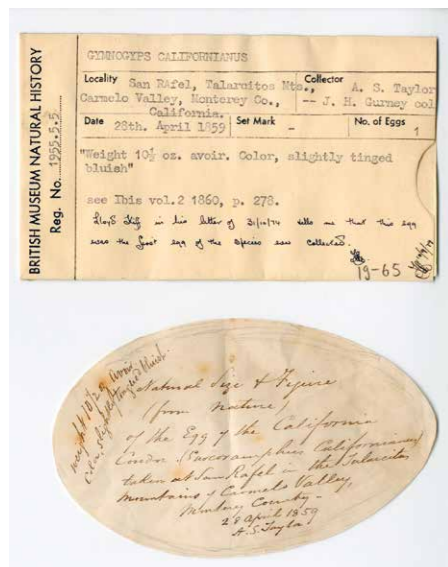 BRITISH MUSEUM NATURAL HISTORY
Reg. No. 1955.5.5
GYMNOGYPS CALIFORNIANUS
Locality San Rafel, Talarcitos Mts.,
Carmelo Valley, Monterey Co.,
California.
Collector A. S. Taylor
-- J. H. Gurney col
Date 28th. April 1859
Set Mark -
No. of Eggs 1
"Weight 10½ oz. avoir. Color, slightly tinged
bluish"
see Ibis vol.2 1860, p. 278.
Lloyd Kiff in his letter of 31/10/74 tells me that this egg
was the first egg of the species ever collected.
19-65
weight 10 1/2 oz avoir
Color slightly tinged bluish.
Natural Size & Figure
(from nature)
of the Egg of the California
Condor (Sarcoramphus Californianus)
taken at San Rafel in the Talarcitos
Mountains of Carmelo Valley,
Monterey County -
28 April 1859
A.S. Taylor